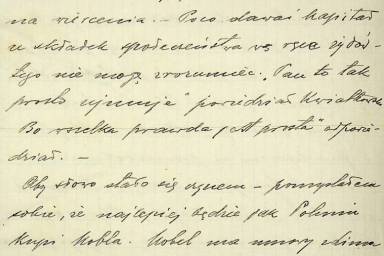 na wiercenia. — Poco dawać kapitał
ze składek społeczeństwa w ręce żydów
tego nie mogę zrozumieć. "Pan to tak
prosto ujmuje" powiedział Kwiatkowski
Bo wszelka prawda jest prosta" odpowie-
dział. —
Aby słowo stało się czynem — pomyślałem
sobie, że najlepiej będzie jak Polmin
kupi Nobla. Nobel ma umowy